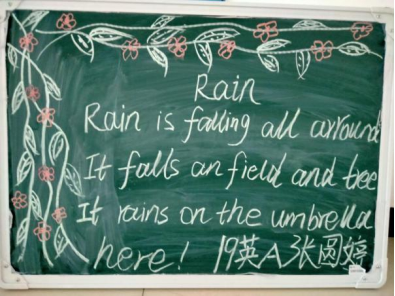 Rain
Rain is falling all around
It falls an field and tree
It rains on the umbrella
here! 19英A张圆婷